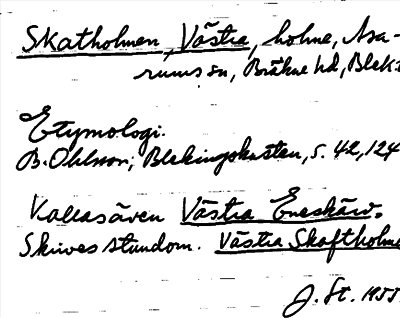 Skatholmen, Västra, holme, Asa-
rums sn, Bräkne hd, Blek.
Etymologi.
B. Ohlsson, Blekingekusten, s. 42, 124
Kallas även Västra Eneskär.
Skrives stundom. Västra Skaftholmen
J. St. 1955